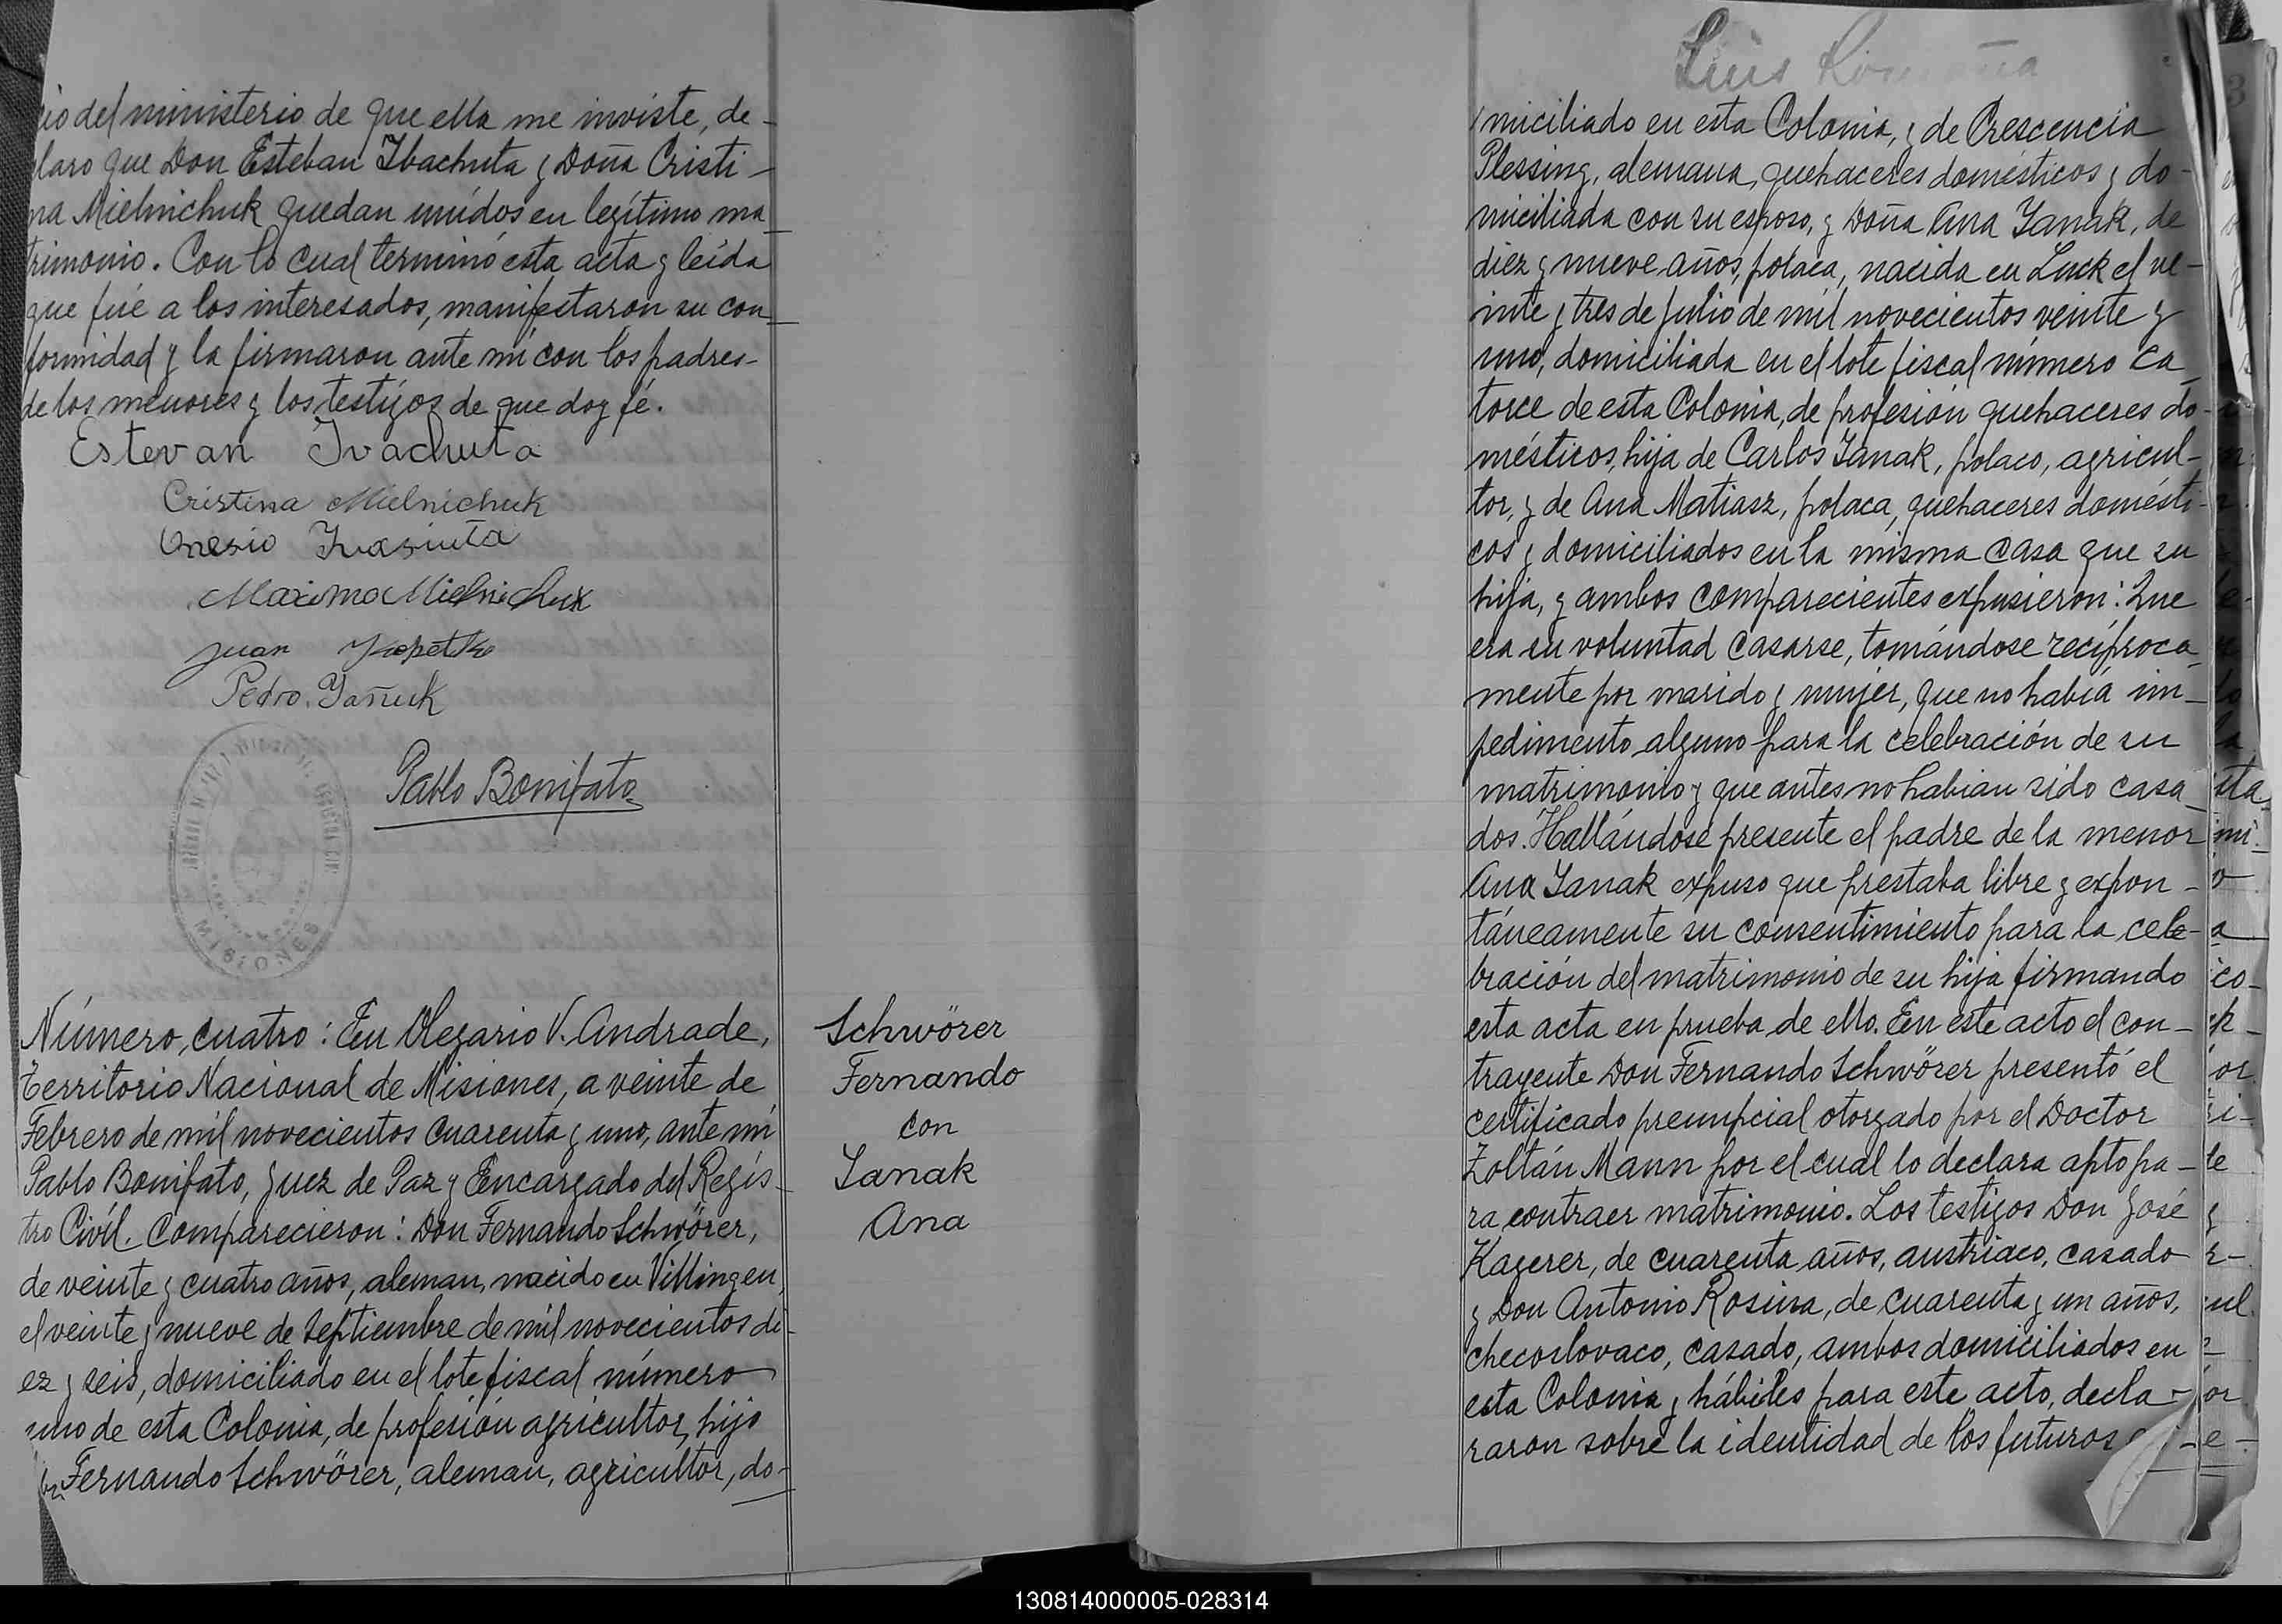 cio del ministerio de que ella me inviste, de-
claro que Don Esteban Ibachuta y Doña Cristi-
na Mielnichuk quedan unidos en legítimo ma-
trimonio. Con lo cual terminó esta acta y leída
que fué a los interesados, manifestaron su con-
formidad y la firmaron ante mí con los padres-
de los menores y los testigos de que doy fé.
Estevan Ivachuta
Cristina Mielnichuk
Onesio Ivasiuta
Maximo Mielnichuk
Juan
Pedro Yañuk
Pablo Bonifato
MISIONES
Número cuatro: En Olegario V. Andrade,
Territorio Nacional de Misiones, a veinte de
Febrero de mil novecientos cuarenta y uno, ante mí
Pablo Bonifato, Juez de Paz y Encargado del Regís-
tro Civíl. Comparecieron: Don Fernando Schwörer,
de veinte y cuatro años, aleman, nacido en Villingen,
el veinte y nueve de Septiembre de mil novecientos di-
ez y seis, domiciliado en el lote fiscal número
uno de esta Colonia, de profesión agricultor, hijo
de Fernando Schwörer, aleman, agricultor, do-
Schwörer
Fernando
con
Yanak
Ana
Luis
miciliado en esta Colonia, y de Crescencia
Plessing, alemana, quehaceres domésticos y do-
miciliada con su esposo, y Doña Ana Yanak, de
diez y nueve años, polaca, nacida en Luck el ve-
inte y tres de julio de mil novecientos veinte y
uno, domiciliada en el lote fiscal número ca-
torce de esta Colonia, de profesión quehaceres do-
mésticos, hija de Carlos Yanak, polaco, agricul-
tor, y de Ana Matiasz, polaca, quehaceres domésti-
cos y domiciliados en la misma casa que su
hija, y ambos comparecientes expusieron: Que
era su voluntad casarse, tomándose recíproca-
mente por marido y mujer, que no había im-
pedimento alguno para la celebración de su
matrimonio y que antes no habian sido casa-
dos. Hallándose presente el padre de la menor
Ana Yanak expuso que prestaba libre y expon-
táneamente su consentimiento para la cele-
bración del matrimonio de su hija firmando
esta acta en prueba de ello. En este acto el con-
trayente Don Fernando Schwörer presentó el
certificado prenupcial otorgado por el Doctor
Zoltán Mann por el cual lo declara apto pa-
ra contraer matrimonio. Los testigos Don José
Kagerer, de cuarenta años, austriaco, casado
y Don Antonio Rosina, de cuarenta y un años,
checoslovaco, casado, ambos domiciliados en
esta Colonia y hábiles para este acto, decla-
raron sobre la identidad de los futuros
130814000005-028314